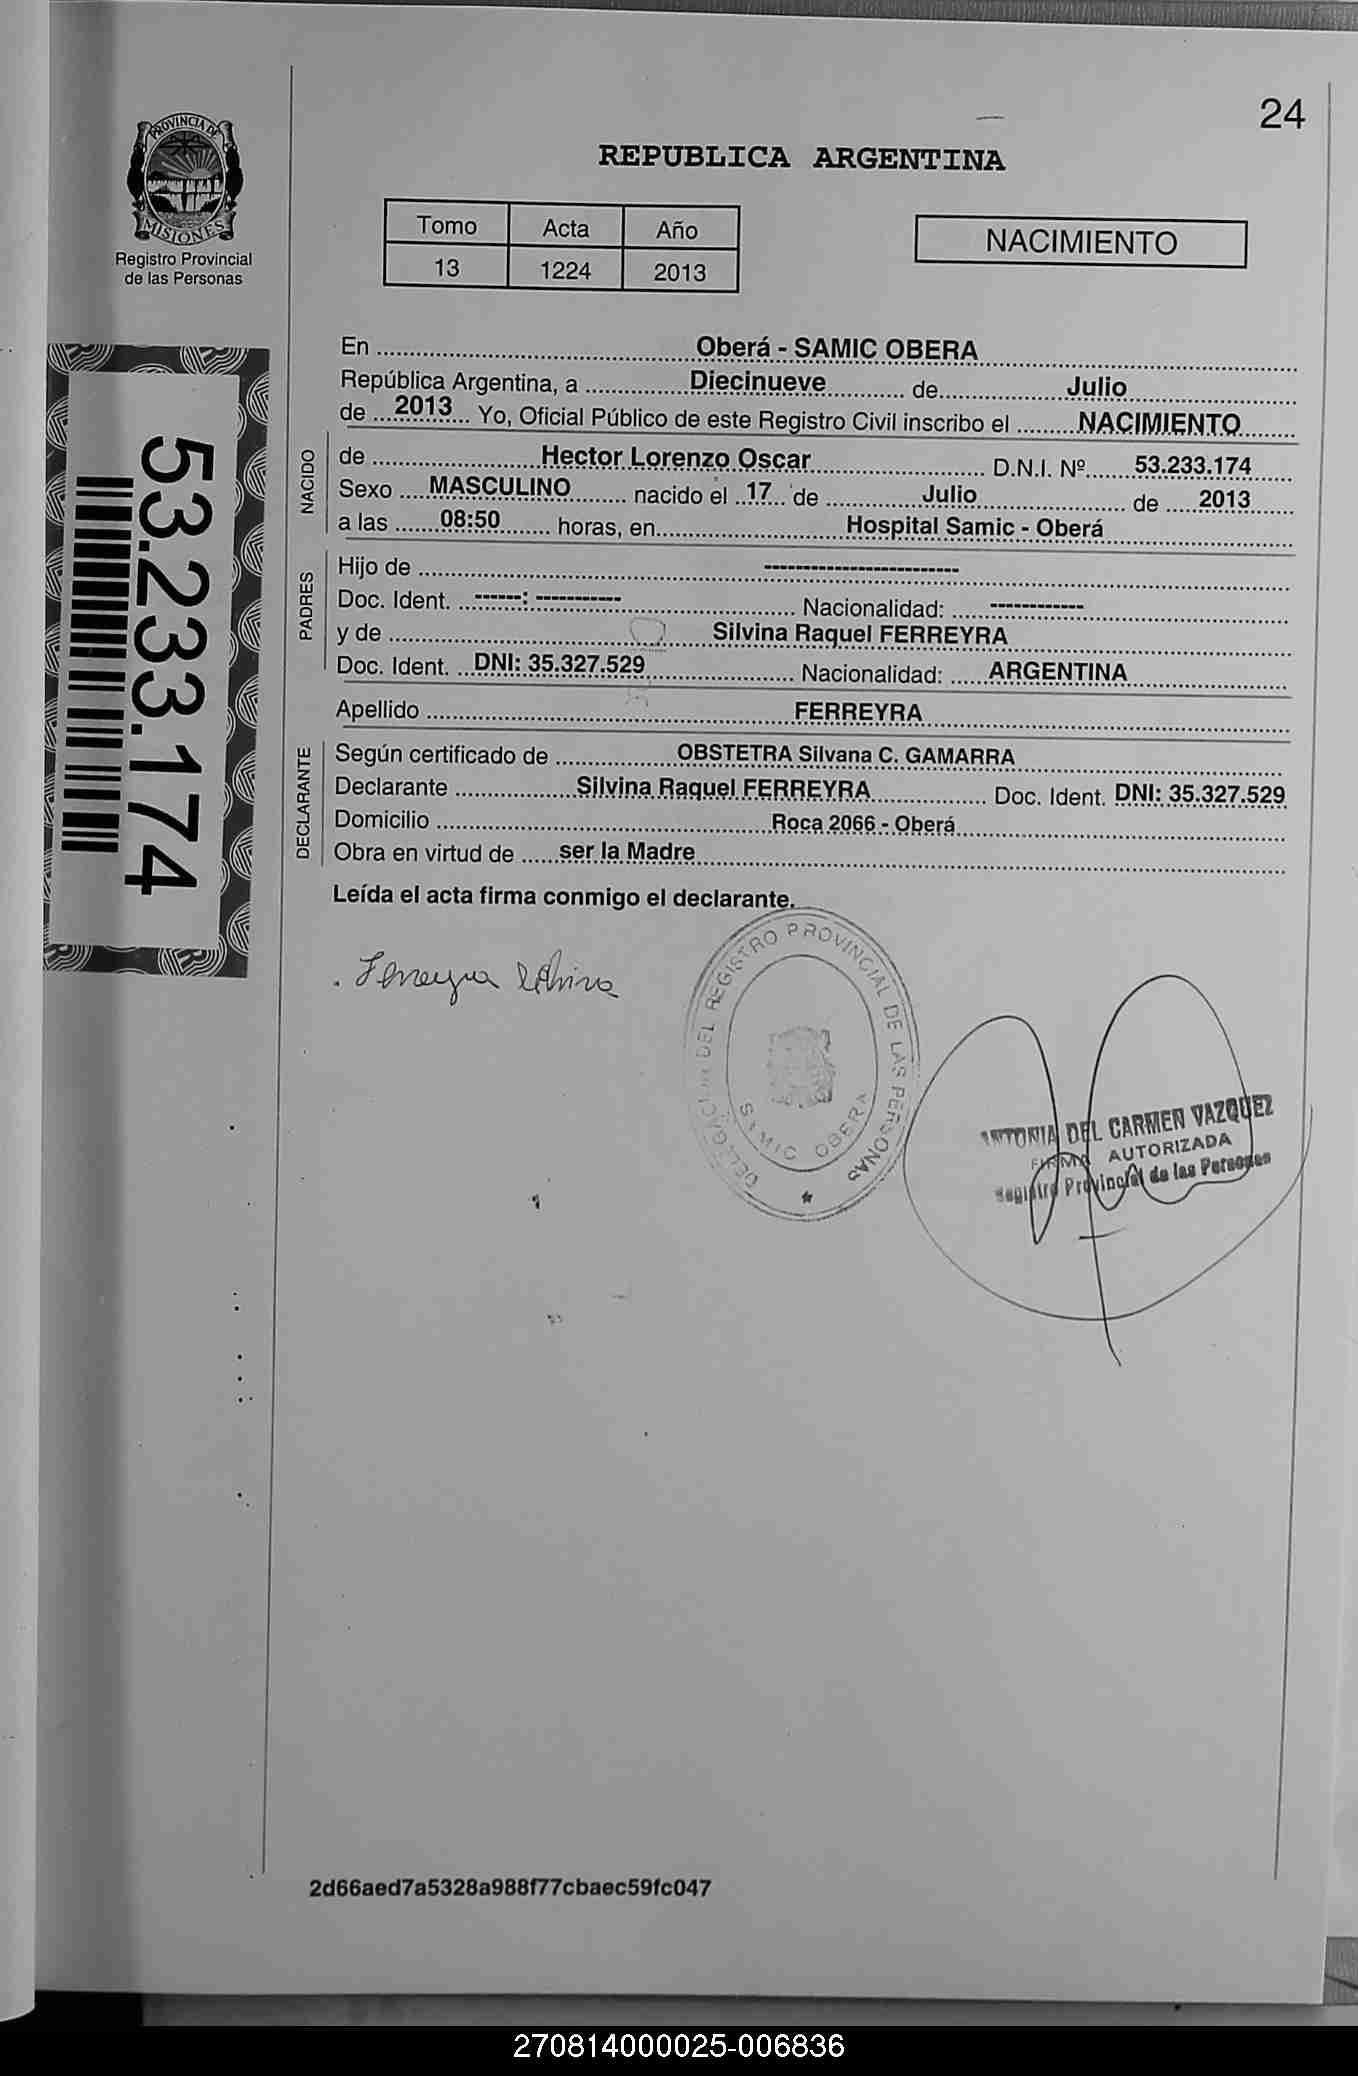 24
PROVINCIA DE
MISIONES
Registro Provincial
de las Personas
REPUBLICA ARGENTINA
Tomo Acta Año
13 1224 2013
NACIMIENTO
53.233.174
En ........ Oberá - SAMIC OBERA ........
República Argentina, a ........ Diecinueve ........ de ........ Julio ........
de ... 2013 ... Yo, Oficial Público de este Registro Civil inscribo el ........ NACIMIENTO ........
NACIDO
de ........ Hector Lorenzo Oscar ........ D.N.I. Nº ...... 53.233.174
Sexo .... MASCULINO ........ nacido el .. 17 ... de ........ Julio ........ de ..... 2013 ......
a las ...... 08:50 ........ horas, en ........ Hospital Samic - Oberá ........
PADRES
Hijo de ........ ------------------------- ........
Doc. Ident. ... ------: ----------- ........ Nacionalidad: .... ------------ ........
y de ........ Silvina Raquel FERREYRA ........
Doc. Ident. ... DNI: 35.327.529 ........ Nacionalidad: ..... ARGENTINA ........
Apellido ........ FERREYRA ........
DECLARANTE
Según certificado de ........ OBSTETRA Silvana C. GAMARRA ........
Declarante ........ Silvina Raquel FERREYRA ........ Doc. Ident. DNI: 35.327.529
Domicilio ........ Roca 2066 - Oberá ........
Obra en virtud de ...... ser la Madre ........
Leída el acta firma conmigo el declarante.
Ferreyra Silvina
DELEGACION DEL REGISTRO PROVINCIAL DE LAS PERSONAS
SAMIC OBERA
ANTONIA DEL CARMEN VAZQUEZ
FIRMA AUTORIZADA
Registro Provincial de las Personas
2d66aed7a5328a988f77cbaec59fc047
270814000025-006836